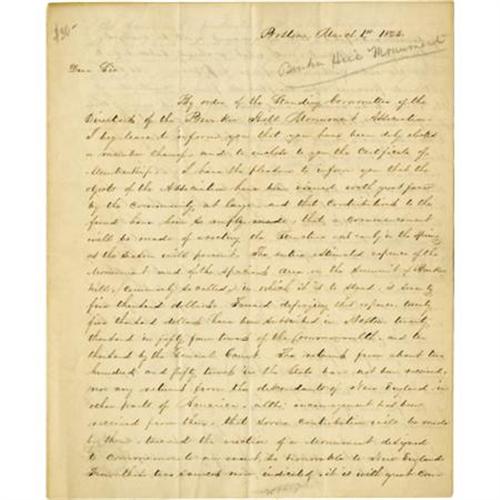 $30
Boston March 1st 182
Bunker Hill Monument
Dear Sir
By order of the Standing Committee of the
Directors of the Bunker Hill Monument Association
I beg leave to inform you that you have been duly elected
a member thereof, and to enclose to you the Certificate of
Membership. I have the pleasure to inform you that the
objects of the Association have been viewed with great favor
by the Community at large and that Contributions to the
fund have been so amply made, that a commencement
will be made of erecting the Structure as early in the Spring
as the Season will permit. The entire estimated expense of the
Monument and of the Spacious Area on the Summit of Bunker
Hill, (commonly so called,) in which it is to stand, is seventy
five thousand dollars. Toward defraying this expense twenty
five thousand dollars have been subscribed in Boston twenty
thousand in fifty four towns of the Commonwealth, and ten
thousand by the General Court. The returns from about two
hundred and fifty towns in the State have not been received,
nor any returns from the descendants of New England in
other parts of America, altho' encouragement has been
received from them, that some contribution will be made
by them toward the erection of a Monument designed
to commemorate an event so honorable to New England
From the two sources now indicated, it is with great con-